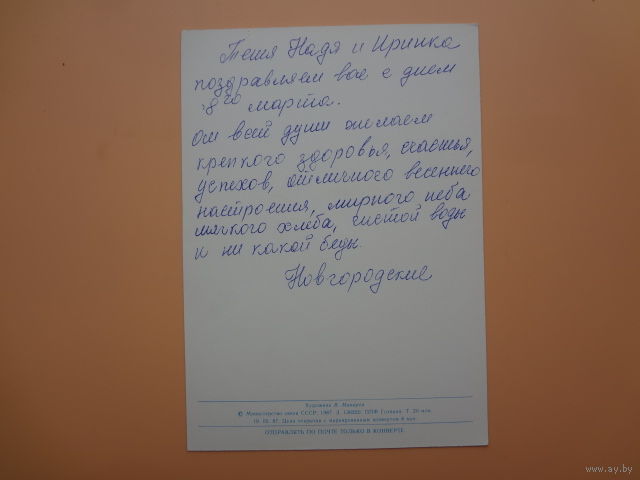 Тетя Надя и Иринка
поздравляем вас с днем
8го марта.
От всей души желаем
крепкого здоровья, счастья,
успехов, отличного весеннего
настроения, мирного неба
мягкого хлеба, чистой воды
и ни какой беды.
Новгородские
Художник Л. Манилова
© Министерство связи СССР, 1987 З. ППФ Гознака. Т. 20 млн.
Цена открытки с маркированным конвертом 8 коп.
ОТПРАВЛЯТЬ ПО ПОЧТЕ ТОЛЬКО В КОНВЕРТЕ
www.ay.by